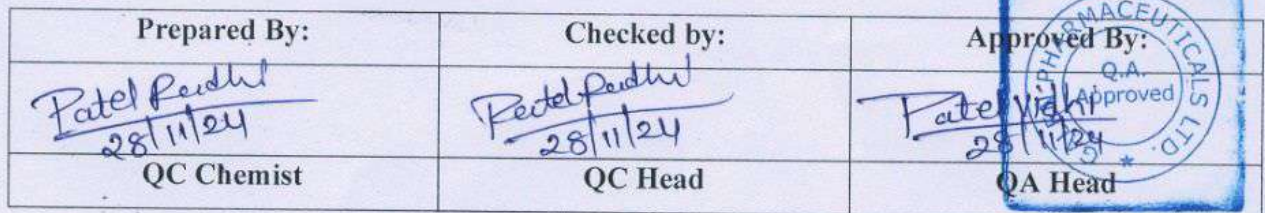 Prepared By:
Checked by:
Approved By:
Patel
28/11/24
28/11/24
Patel Vidhi
28/11/24
QC Chemist
QC Head
QA Head
PHARMACEUTICALS LTD.
Q.A.
Approved